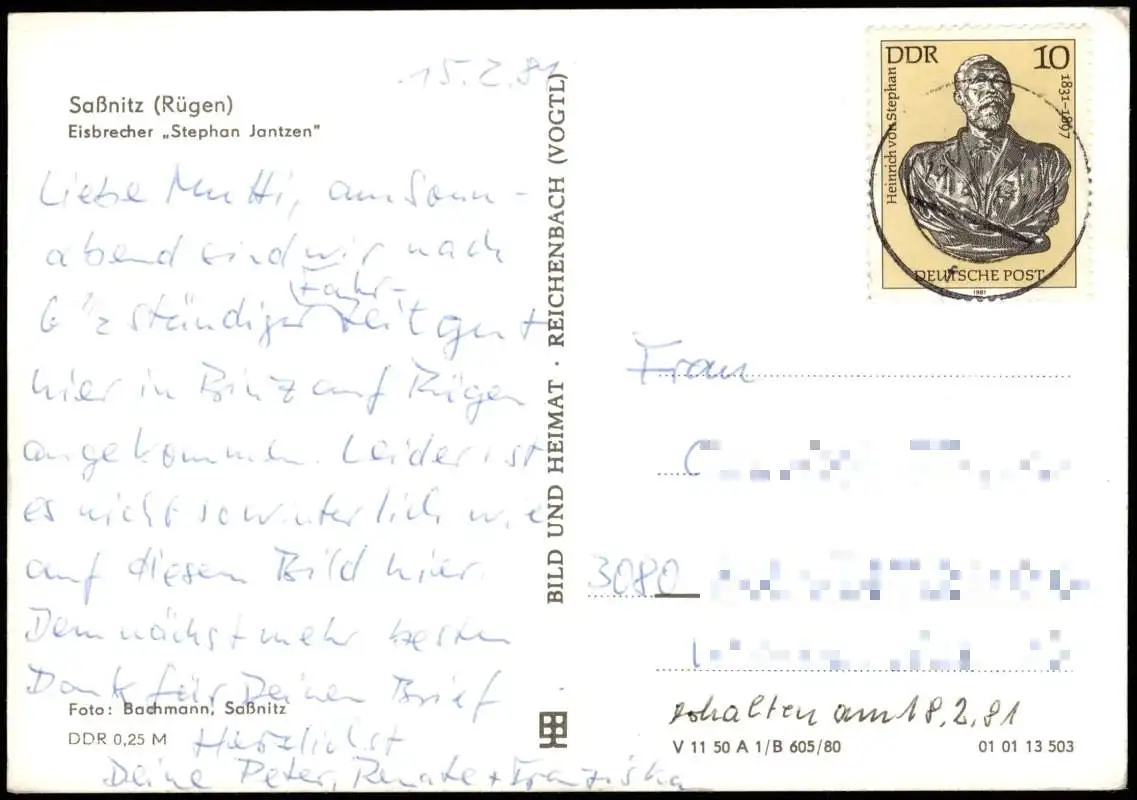 15.2.81
Saßnitz (Rügen)
Eisbrecher „Stephan Jantzen"
Liebe Mutti, am Sonn-
abend sind wir nach
6 1/2 ständiger Fahr-
zeit gut
hier in Binz auf Rügen
angekommen. Leider ist
es nicht so winterlich wie
auf diesem Bild hier.
Demnächst mehr besten
Dank für Deinen Brief
Herzlichst
Deine Peter, Renate + Franziska
Foto: Bachmann, Saßnitz
DDR 0,25 M
BILD UND HEIMAT · REICHENBACH (VOGTL)
DDR 10
Heinrich von Stephan
1831–1897
DEUTSCHE POST
1981
Frau
3080
erhalten am 18.2.81
V 11 50 A 1/B 605/80
01 01 13 503